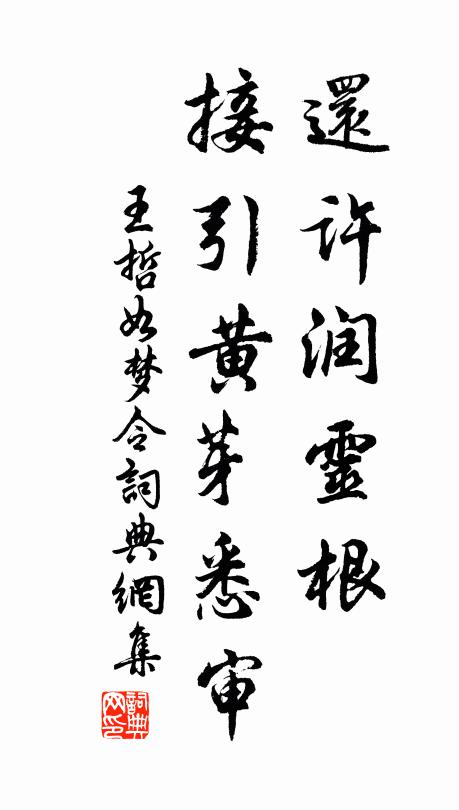 還許润靈根
接引黄芽悉审
王哲如梦令詞典網集
詞典网印